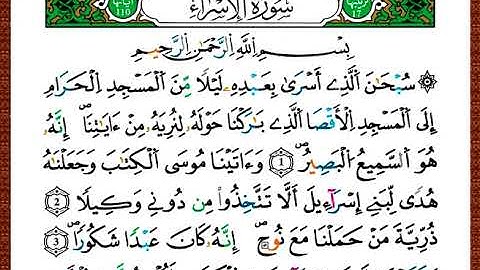 آياتها 110 سُورَةُ الْإِسْرَاءِ ترتيبها 17
بِسْمِ اللَّهِ الرَّحْمَٰنِ الرَّحِيمِ
۞ سُبْحَانَ الَّذِي أَسْرَىٰ بِعَبْدِهِ لَيْلًا مِنَ الْمَسْجِدِ الْحَرَامِ
إِلَى الْمَسْجِدِ الْأَقْصَا الَّذِي بَارَكْنَا حَوْلَهُ لِنُرِيَهُ مِنْ ءَايَاتِنَا إِنَّهُ
هُوَ السَّمِيعُ الْبَصِيرُ 1 وَءَاتَيْنَا مُوسَى الْكِتَابَ وَجَعَلْنَاهُ
هُدًى لِبَنِي إِسْرَآءِيلَ أَلَّا تَتَّخِذُوا مِنْ دُونِي وَكِيلًا 2
ذُرِّيَّةَ مَنْ حَمَلْنَا مَعَ نُوحٍ إِنَّهُ كَانَ عَبْدًا شَكُورًا 3